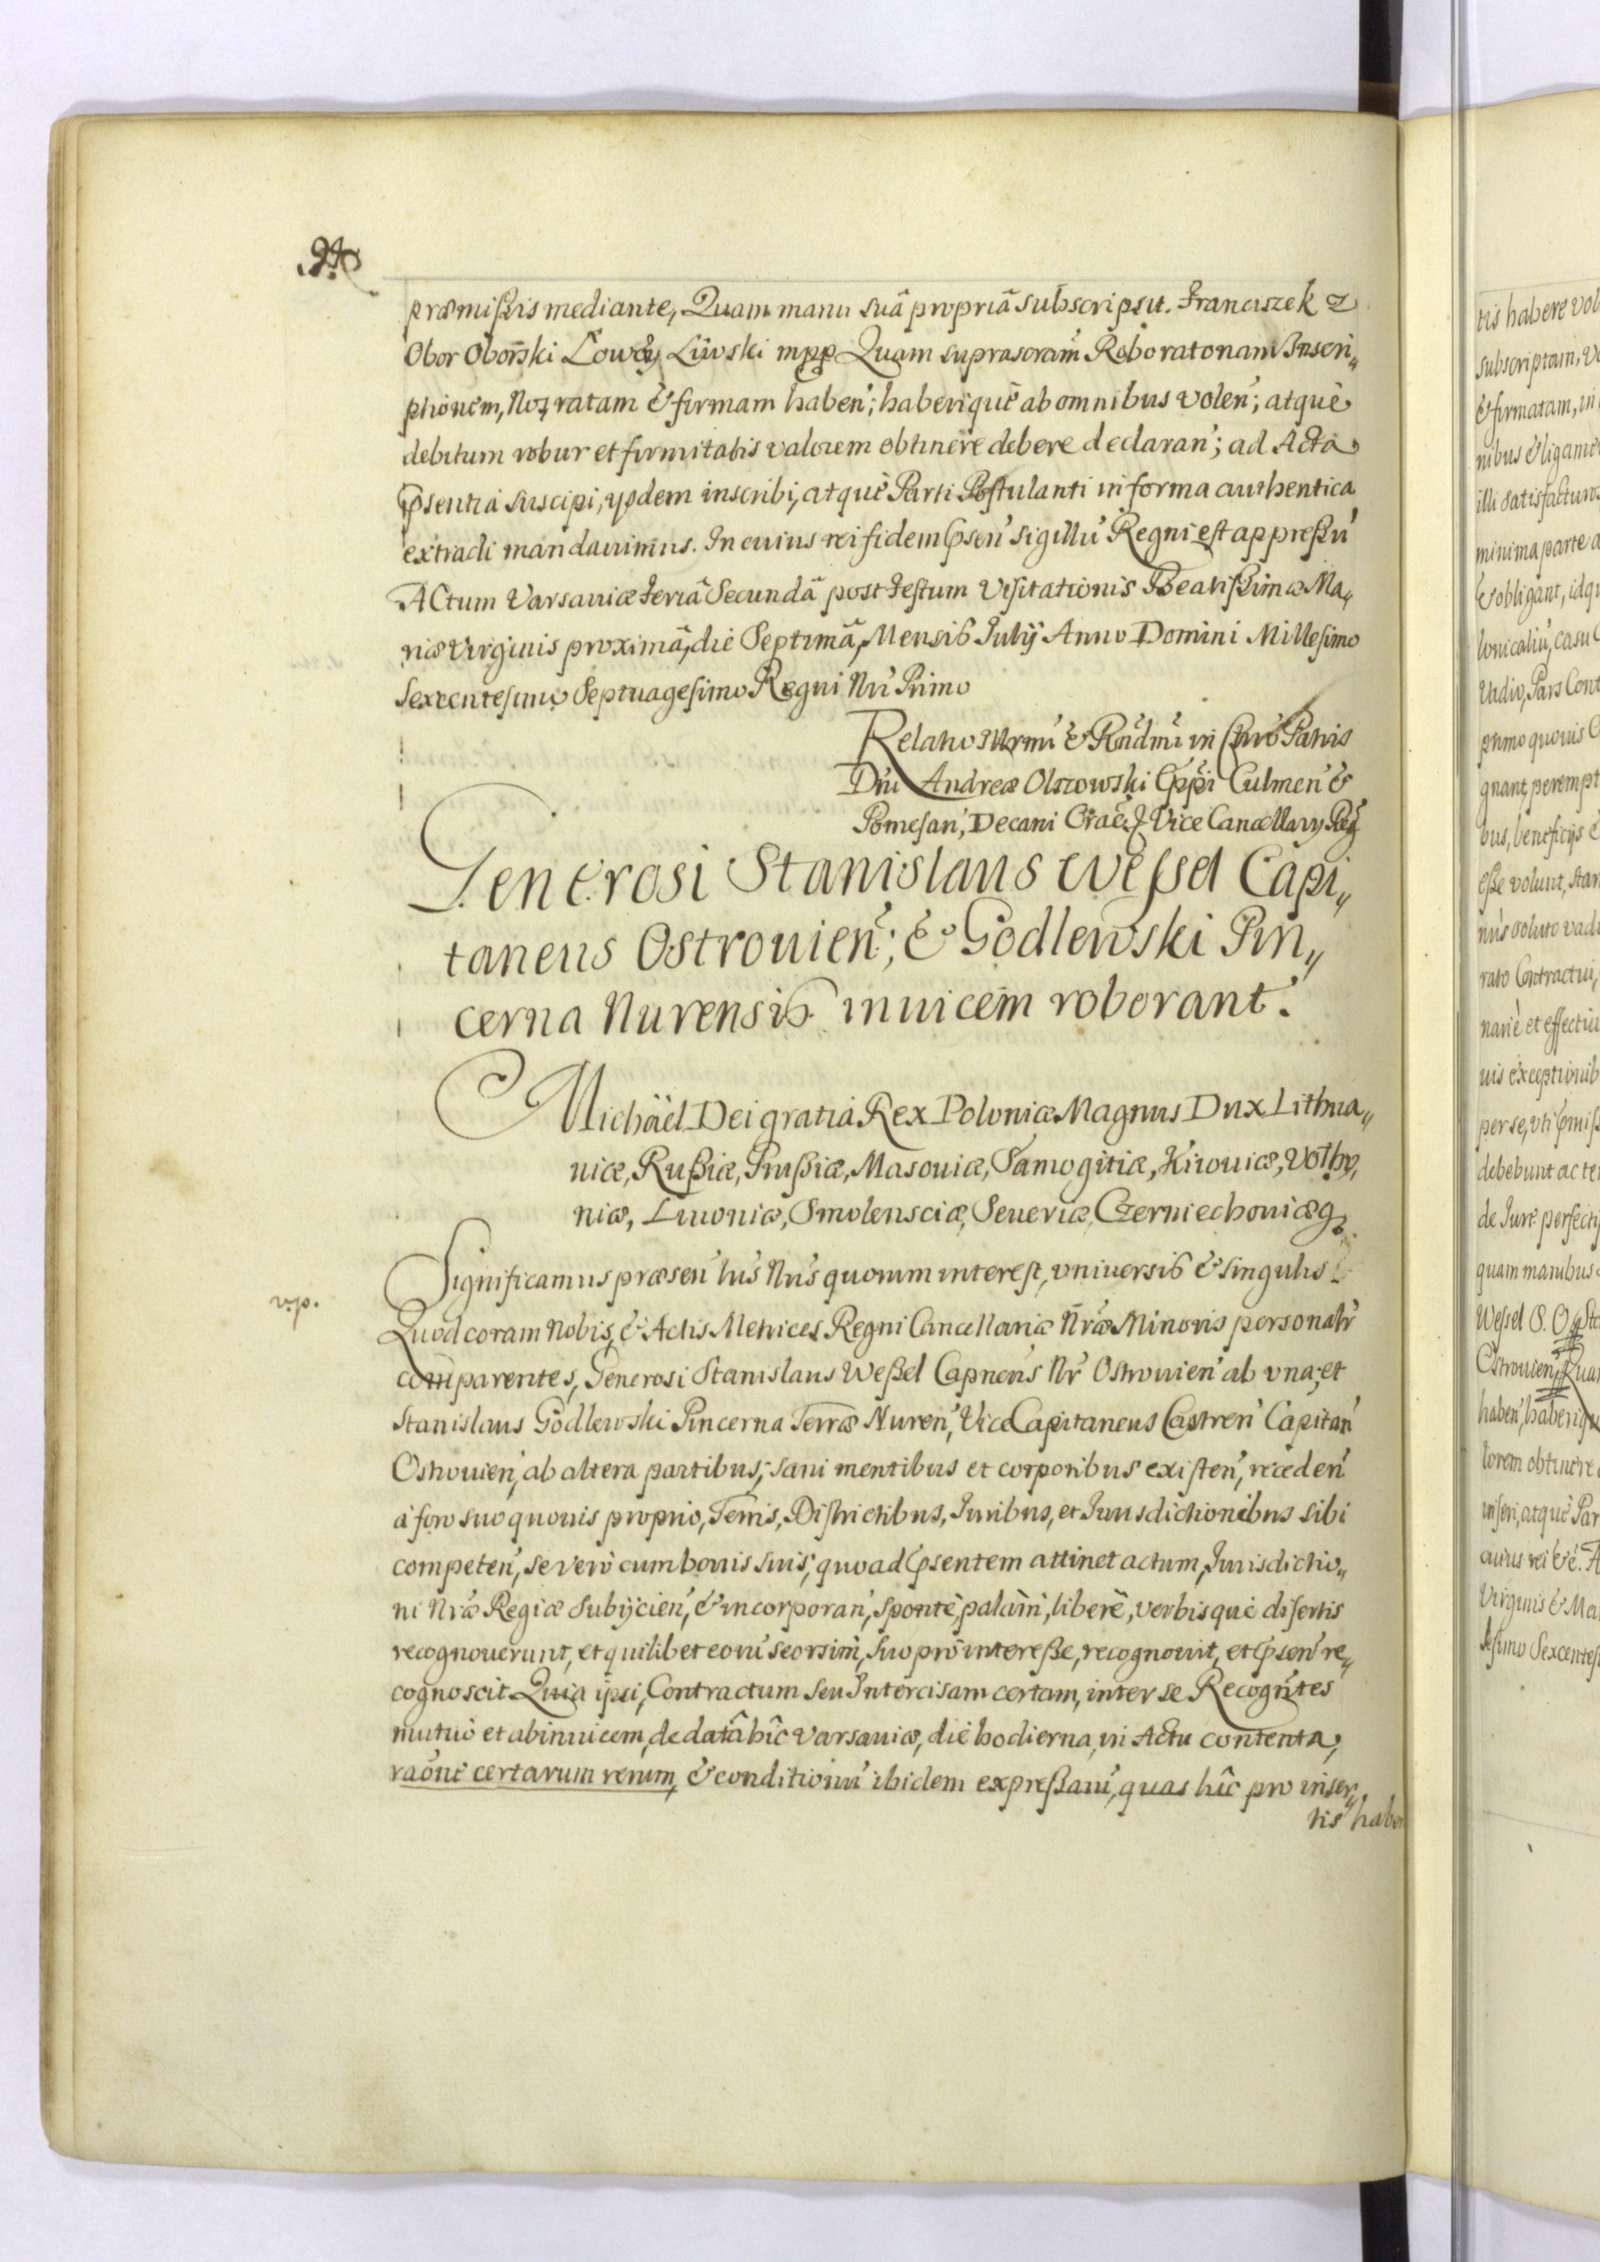 præmißis mediante, Quam manu suâ propriâ subscripsit. Franciszek z
Obor Oborski Łowczy Liwski mpp Quam suprascram̃ Roboratoriam Inscri„
ptionem, Nos ratam & firmam haben̄; haberiquè ab omnibus volen̄; atquè
debitum robur et firmitatis valorem obtinere debere declaran̄; ad Acta
p̃sentia suscipi, ijsdem inscribi, atquè Parti Postulanti in forma authentica
extradi mandauimus. In cuius rei fidem p̃sen̄ sigillū Regni est appreßū
ACtum Varsauiæ feriâ Secundâ post Festum Visitationis Beatißimæ Ma„
riæ Virginis proximâ, die Septimâ, Mensis Iulij Anno Domini Millesimo
Sexcentesimo Septuagesimo Regni Nr̃i Primo
Relatio Illrmi & Rndmi in Chro Patris
Dni Andreæ Olszowski Eppi Culmen̄ &
Pomesan̄, Decani Crac̄, Vice Cancellarij Reg̃
Generosi Stanislaus Weßel Capi„
taneus Ostrouien̄; & Godlewski Pin„
cerna Nurensis inuicem roborant.
Michäel Dei gratia Rex Poloniæ Magnus Dux Lithua„
niæ, Rußiæ, Prußiæ, Masouiæ, Samogitiæ, Kiiouiæ, Volhy„
niæ, Liuoniæ, Smolensciæ, Seueriæ, Czerniechouiæq̃
Significamus præsen̄ lr̃is Nr̃is quorum interest, vniuersis & singulis
Quod coram Nobis, & Actis Metrices Regni Cancellariæ Nr̃æ Minoris personalr̃
comparentes, Generosi Stanislaus Weßel Capneus Nr̃ Ostrouien̄ ab vna, et
Stanislaus Godlewski Pincerna Terræ Nuren̄, Vice Capitaneus Castren̄ Capitan̄
Ostrouien̄, ab altera partibus, sani mentibus et corporibus existen̄, receden̄
à foro suo quouis proprio, Terris, Districtibus, Iuribus, et Iurisdictionibus sibi
competen̄, se verò cum bonis suis, quoad p̃sentem attinet actum, Iurisdictio„
ni Nr̃æ Regiæ subijcien̄, & incorporan̄, spontè, palàm, liberè, verbisquè disertis
recognouerunt, et quilibet eorū seorsim, suo pro intereße, recognouit, et p̃sen̄ re„
cognoscit Quia ipsi, Contractum seu Intercisam certam, inter se Recogñtes
mutuò et abinuicem, de datâ hîc Varsauiæ, die hodierna, in Actu contenta,
rāone certarum rerum, & conditionū ibidem expreßarū, quas hîc pro inser„
tis haber
tis habere vol
subscriptam,
& firmatam, in
nibus & ligamē
illi satisfacturos
minima parte a
& obligant, idq
lonicaliū, casu
Vadio, Pars Cont
primo quouis
gnant, perempt
bus, beneficijs
eße volunt, stan
nus soluto vadi
rato Contractui,
nariè et effectiu
uis exceptionib
per se, vti p̃miß
debebunt ac te
de Iure perfecti
quam manibus
Weßel S. O.
Ostrouien̄, Quam
haben̄, haberiqu
lorem obtinere
inseri, atquè Par
cuius rei &c. A
Virginis & Ma
lesimo Sexcentes